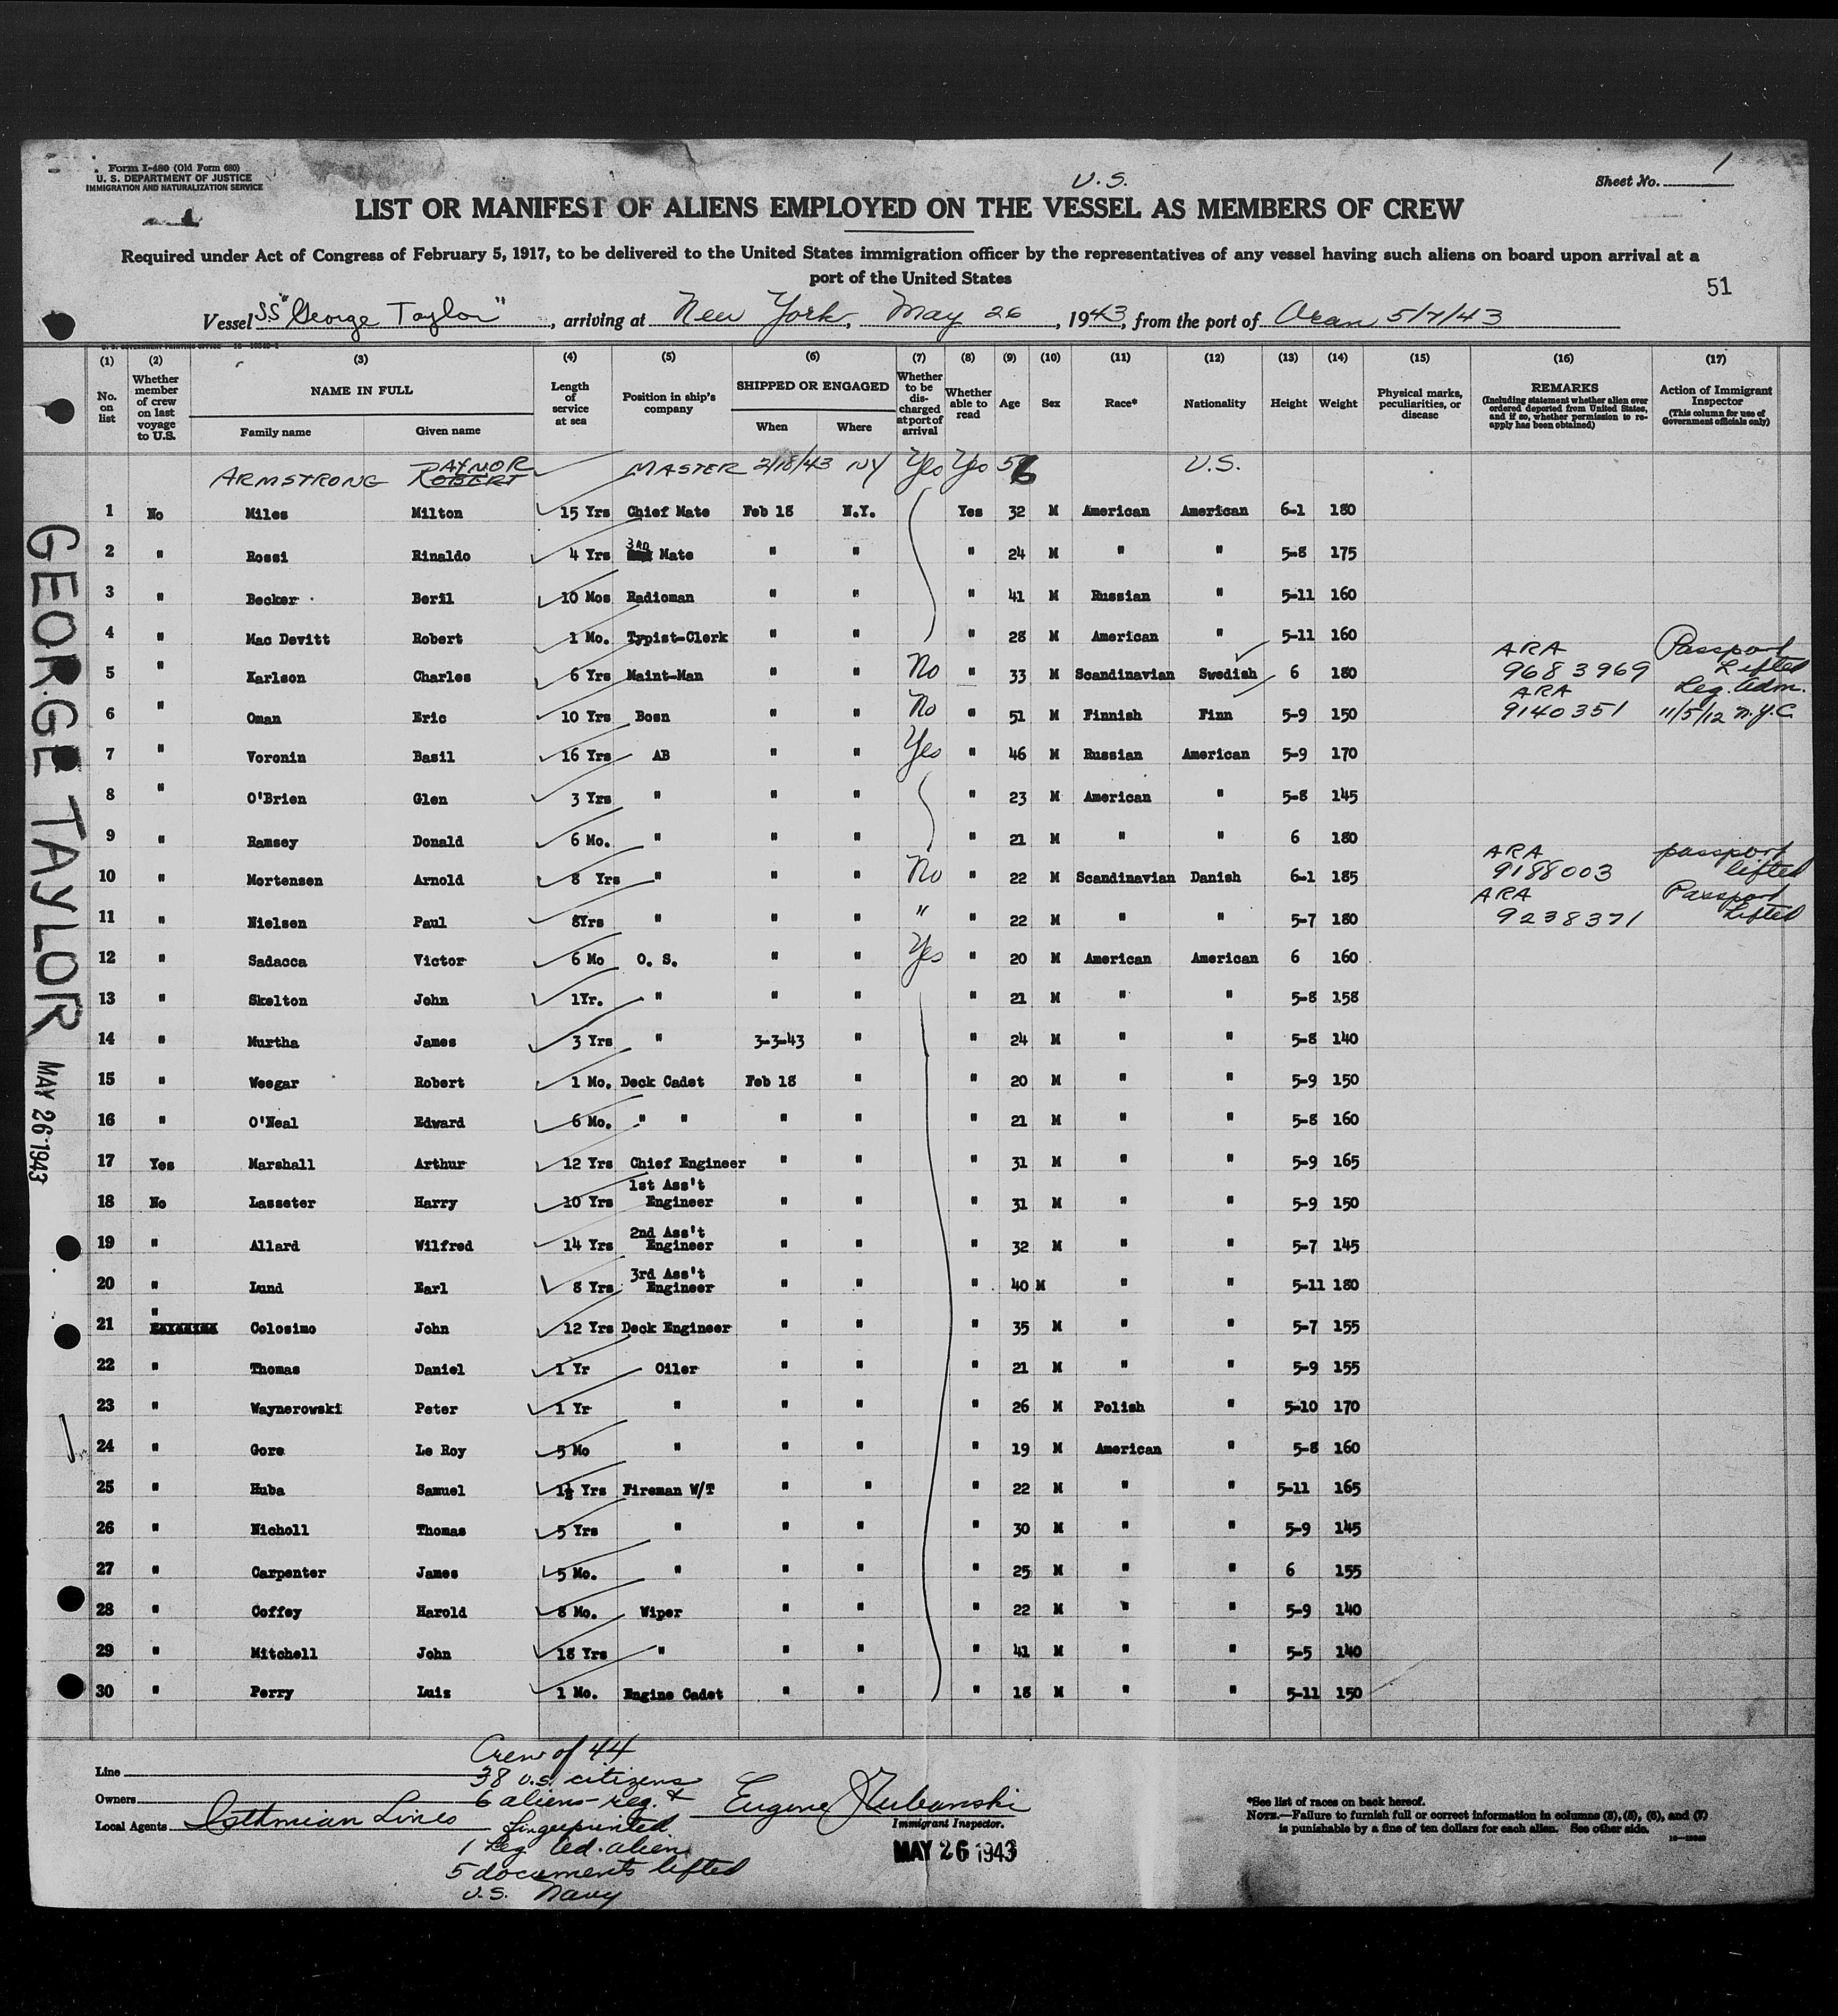 Form I-480 (Old Form 680)
U. S. DEPARTMENT OF JUSTICE
IMMIGRATION AND NATURALIZATION SERVICE
Sheet No. 1
U.S.
LIST OR MANIFEST OF ALIENS EMPLOYED ON THE VESSEL AS MEMBERS OF CREW
Required under Act of Congress of February 5, 1917, to be delivered to the United States immigration officer by the representatives of any vessel having such aliens on board upon arrival at a
port of the United States
51
Vessel S.S "George Taylor", arriving at New York, May 26, 1943, from the port of Oran 5/7/43
(1) (2) (3) (4) (5) (6) (7) (8) (9) (10) (11) (12) (13) (14) (15) (16) (17)
No. on list
Whether member of crew on last voyage to U.S.
NAME IN FULL
Family name Given name
Length of service at sea
Position in ship's company
SHIPPED OR ENGAGED
When Where
Whether to be discharged at port of arrival
Whether able to read
Age
Sex
Race*
Nationality
Height
Weight
Physical marks, peculiarities, or disease
REMARKS
(Including statement whether alien ever ordered deported from United States, and if so, whether permission to reapply has been obtained)
Action of Immigrant Inspector
(This column for use of Government officials only)
ARMSTRONG RAYNOR ROBERT MASTER 2/18/43 NY Yes Yes 56 U.S.
1 No Miles Milton 15 Yrs Chief Mate Feb 18 N.Y. Yes 32 M American American 6-1 180
2 " Rossi Rinaldo 4 Yrs 3RD Mate " " " 24 M " " 5-8 175
3 " Becker Beril 10 Mos Radioman " " " 41 M Russian " 5-11 160
4 " Mac Devitt Robert 1 Mo. Typist-Clerk " " " 28 M American " 5-11 160
5 " Karlson Charles 6 Yrs Maint-Man " " No " 33 M Scandinavian Swedish 6 180 ARA 9683969 Passport Lifted
6 " Oman Eric 10 Yrs Bosn " " No " 51 M Finnish Finn 5-9 150 ARA 9140351 Leg. Adm. 11/5/12 N.Y.C
7 " Voronin Basil 16 Yrs AB " " Yes " 46 M Russian American 5-9 170
8 " O'Brien Glen 3 Yrs " " " " 23 M American " 5-8 145
9 " Ramsey Donald 6 Mo. " " " " 21 M " " 6 180
10 " Mortensen Arnold 8 Yrs " " " No " 22 M Scandinavian Danish 6-1 185 ARA 9188003 passport lifted
11 " Nielsen Paul 8Yrs " " " " " 22 M " " 5-7 180 ARA 9238371 Passport Lifted
12 " Sadacca Victor 6 Mo O. S. " " Yes " 20 M American American 6 160
13 " Skelton John 1Yr. " " " " 21 M " " 5-8 158
14 " Murtha James 3 Yrs " 3-3-43 " " 24 M " " 5-8 140
15 " Weegar Robert 1 Mo. Deck Cadet Feb 18 " " 20 M " " 5-9 150
16 " O'Neal Edward 6 Mo. " " " " " 21 M " " 5-8 160
17 Yes Marshall Arthur 12 Yrs Chief Engineer " " " 31 M " " 5-9 165
18 No Lasseter Harry 10 Yrs 1st Ass't Engineer " " " 31 M " " 5-9 150
19 " Allard Wilfred 14 Yrs 2nd Ass't Engineer " " " 32 M " " 5-7 145
20 " Lund Earl 8 Yrs 3rd Ass't Engineer " " " 40 M " " 5-11 180
21 " Colosimo John 12 Yrs Deck Engineer " " " 35 M " " 5-7 155
22 " Thomas Daniel 1 Yr Oiler " " " 21 M " " 5-9 155
23 " Waynerowski Peter 1 Yr " " " " 26 M Polish " 5-10 170
24 " Gore Le Roy 5 Mo " " " " 19 M American " 5-8 160
25 " Huba Samuel 1½ Yrs Fireman W/T " " " 22 M " " 5-11 165
26 " Nicholl Thomas 5 Yrs " " " " 30 M " " 5-9 145
27 " Carpenter James 5 Mo. " " " " 25 M " " 6 155
28 " Coffey Harold 8 Mo. Wiper " " " 22 M " " 5-9 140
29 " Mitchell John 18 Yrs " " " " 41 M " " 5-5 140
30 " Perry Luis 1 Mo. Engine Cadet " " " 18 M " " 5-11 150
GEORGE TAYLOR MAY 26 1943
Crew of 44
38 U.S. citizens
6 aliens - reg. &
fingerprinted
1 Leg. Ad. alien
5 documents lifted
U.S. Navy
Line
Owners
Local Agents Isthmian Lines
Eugene
Immigrant Inspector.
MAY 26 1943
*See list of races on back hereof.
NOTE.—Failure to furnish full or correct information in columns (3), (5), (6), and (7)
is punishable by a fine of ten dollars for each alien. See other side.